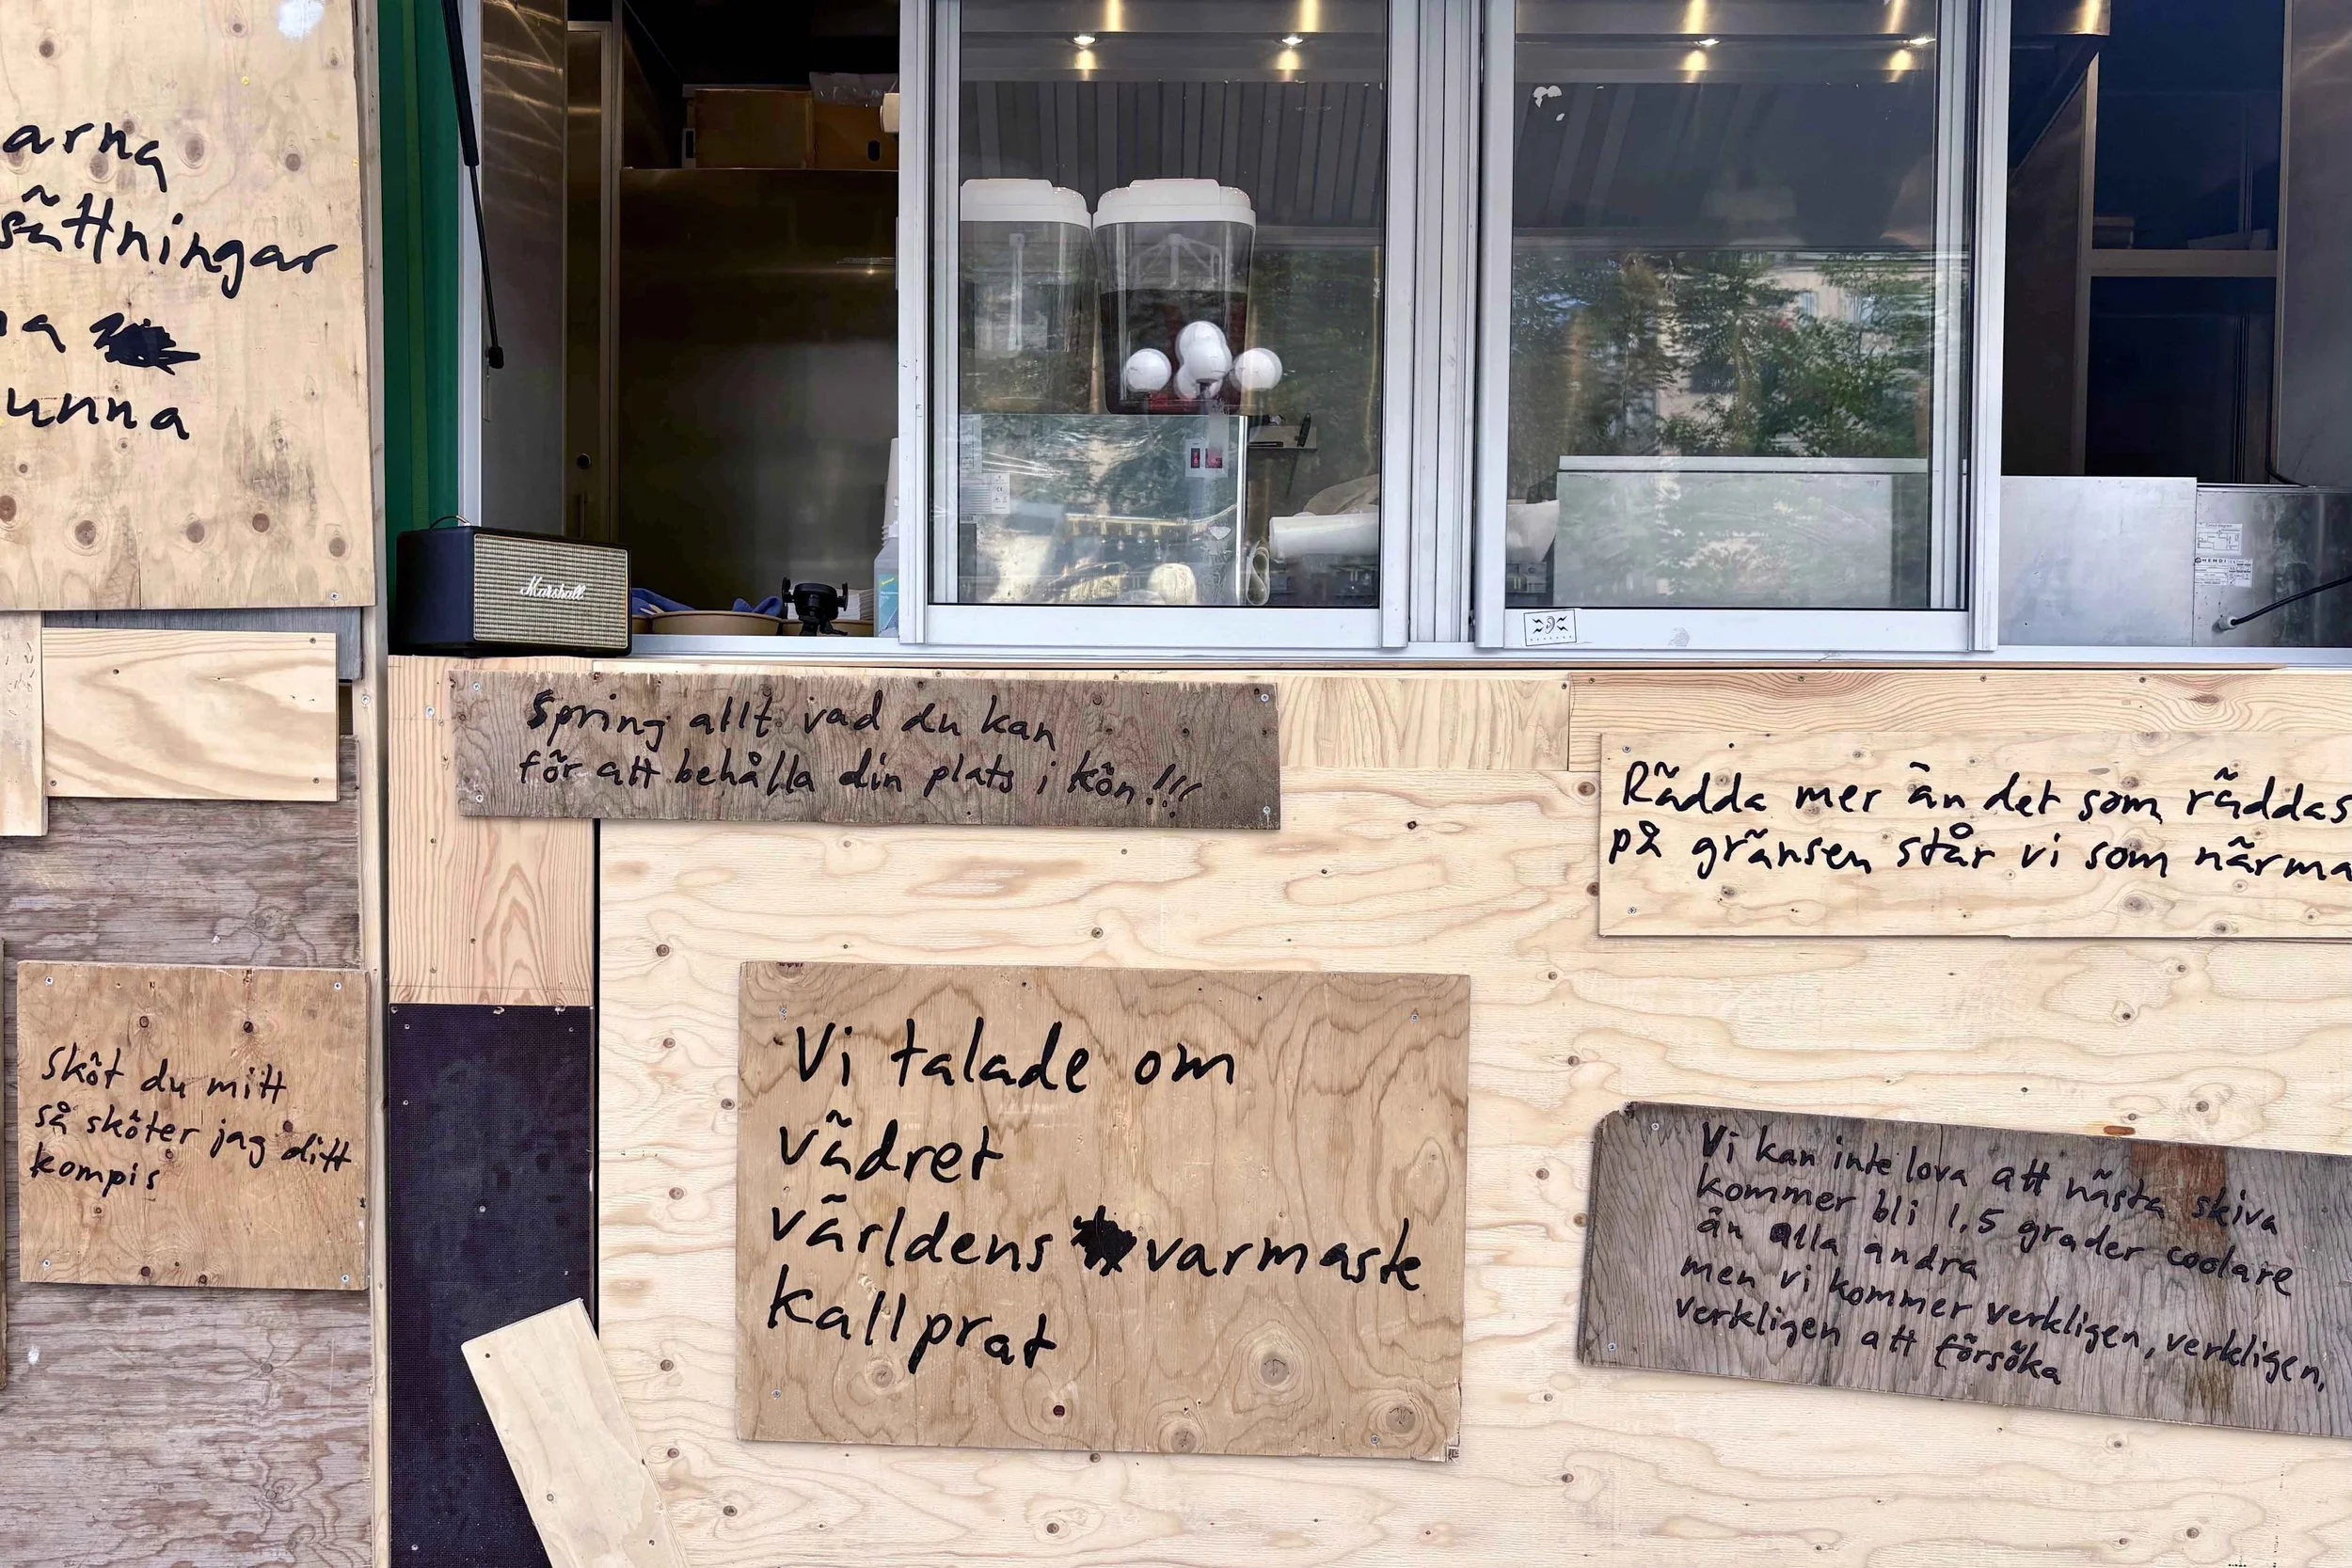 arna
sättningar
unna
Marshall
Spring allt vad du kan
för att behålla din plats i kön!!!
Rädda mer än det som räddas
på gränsen står vi som närma
Sköt du mitt
så sköter jag ditt
kompis
Vi talade om
vädret
världens varmaste
kallprat
Vi kan inte lova att nästa skiva
kommer bli 1,5 grader coolare
än alla andra
men vi kommer verkligen, verkligen,
verkligen att försöka
HENDI